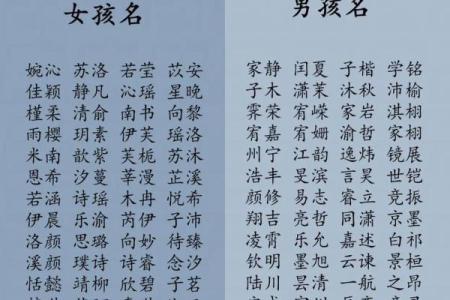 女孩名
婉沁 苏洛 若莹 苡安
佳颖 静凡 沁瑶 星晚
槿柔 清俞 南书 向黎
雨樱 玥素 伊芙 瑶洛
米南 歆紫 芙栀 苏沐
恩希 汐蔓 莘漫 芷溪
若涵 诗瑶 木冉 悦希
伊晨 乐渝 芮伊 子沛
洛颜 思璐 向妙 待臻
溪颜 璞诗 诗睿 念汐
恬懿 靖柳 诗欣 子茗
男孩名
家静 闰夏 子楷 学铭
子木 潇茉 沐秋 沛榆
霁荣 宥嵘 家岩 淇栩
宥嘉 宥姗 渝哲 家栩
州宁 江韵 逸炜 镜展
浩丰 昊滨 言昊 世铠
颜修 易志 睿立 竞振
翔吉 亮哲 同潇 京墨
凌霄 乐允 嘉述 白祁
钦明 墨旭 云谏 景桓
陆川 昊清 一航